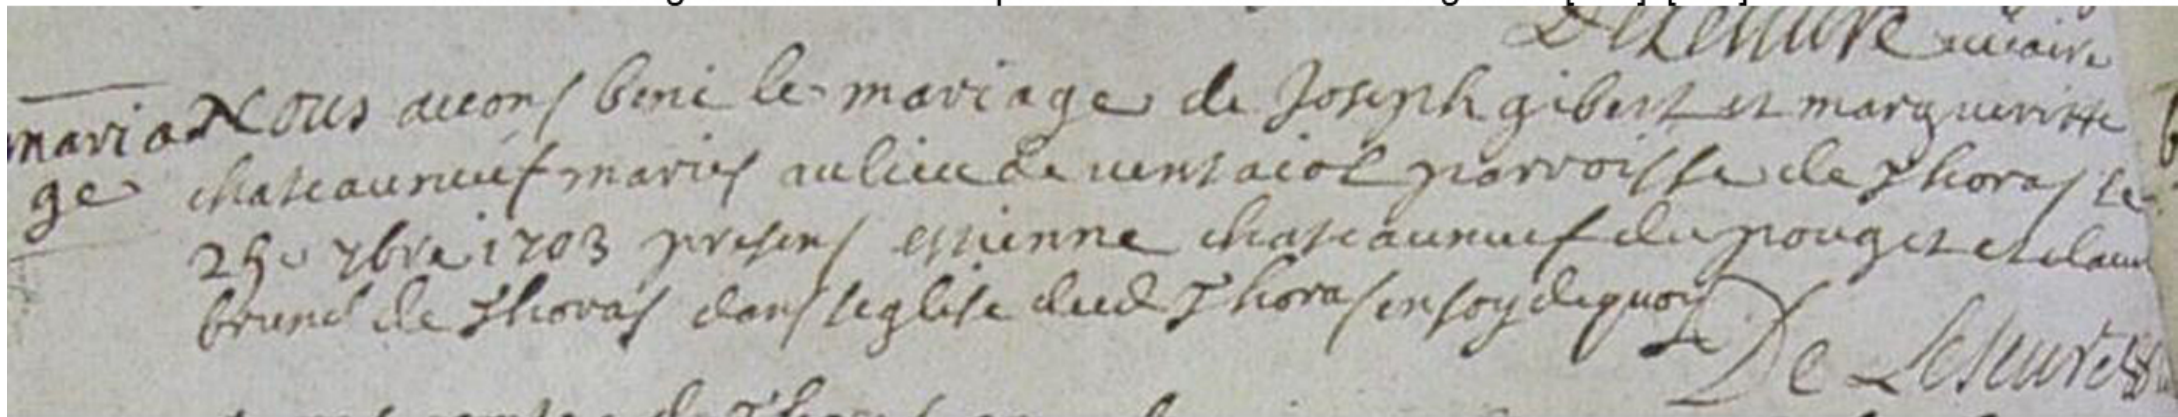 Delescure vicaire
maria
ge
Nous avons beni le mariage de Joseph gibert et margueritte
chateauneuf mariés au lieu de ventaiol parroisse de Thoras le
25e 7bre 1703 presens estienne chateauneuf du pouget et claude
brunel de Thoras dans leglise dud Thoras en foy de quoy
De Lescure